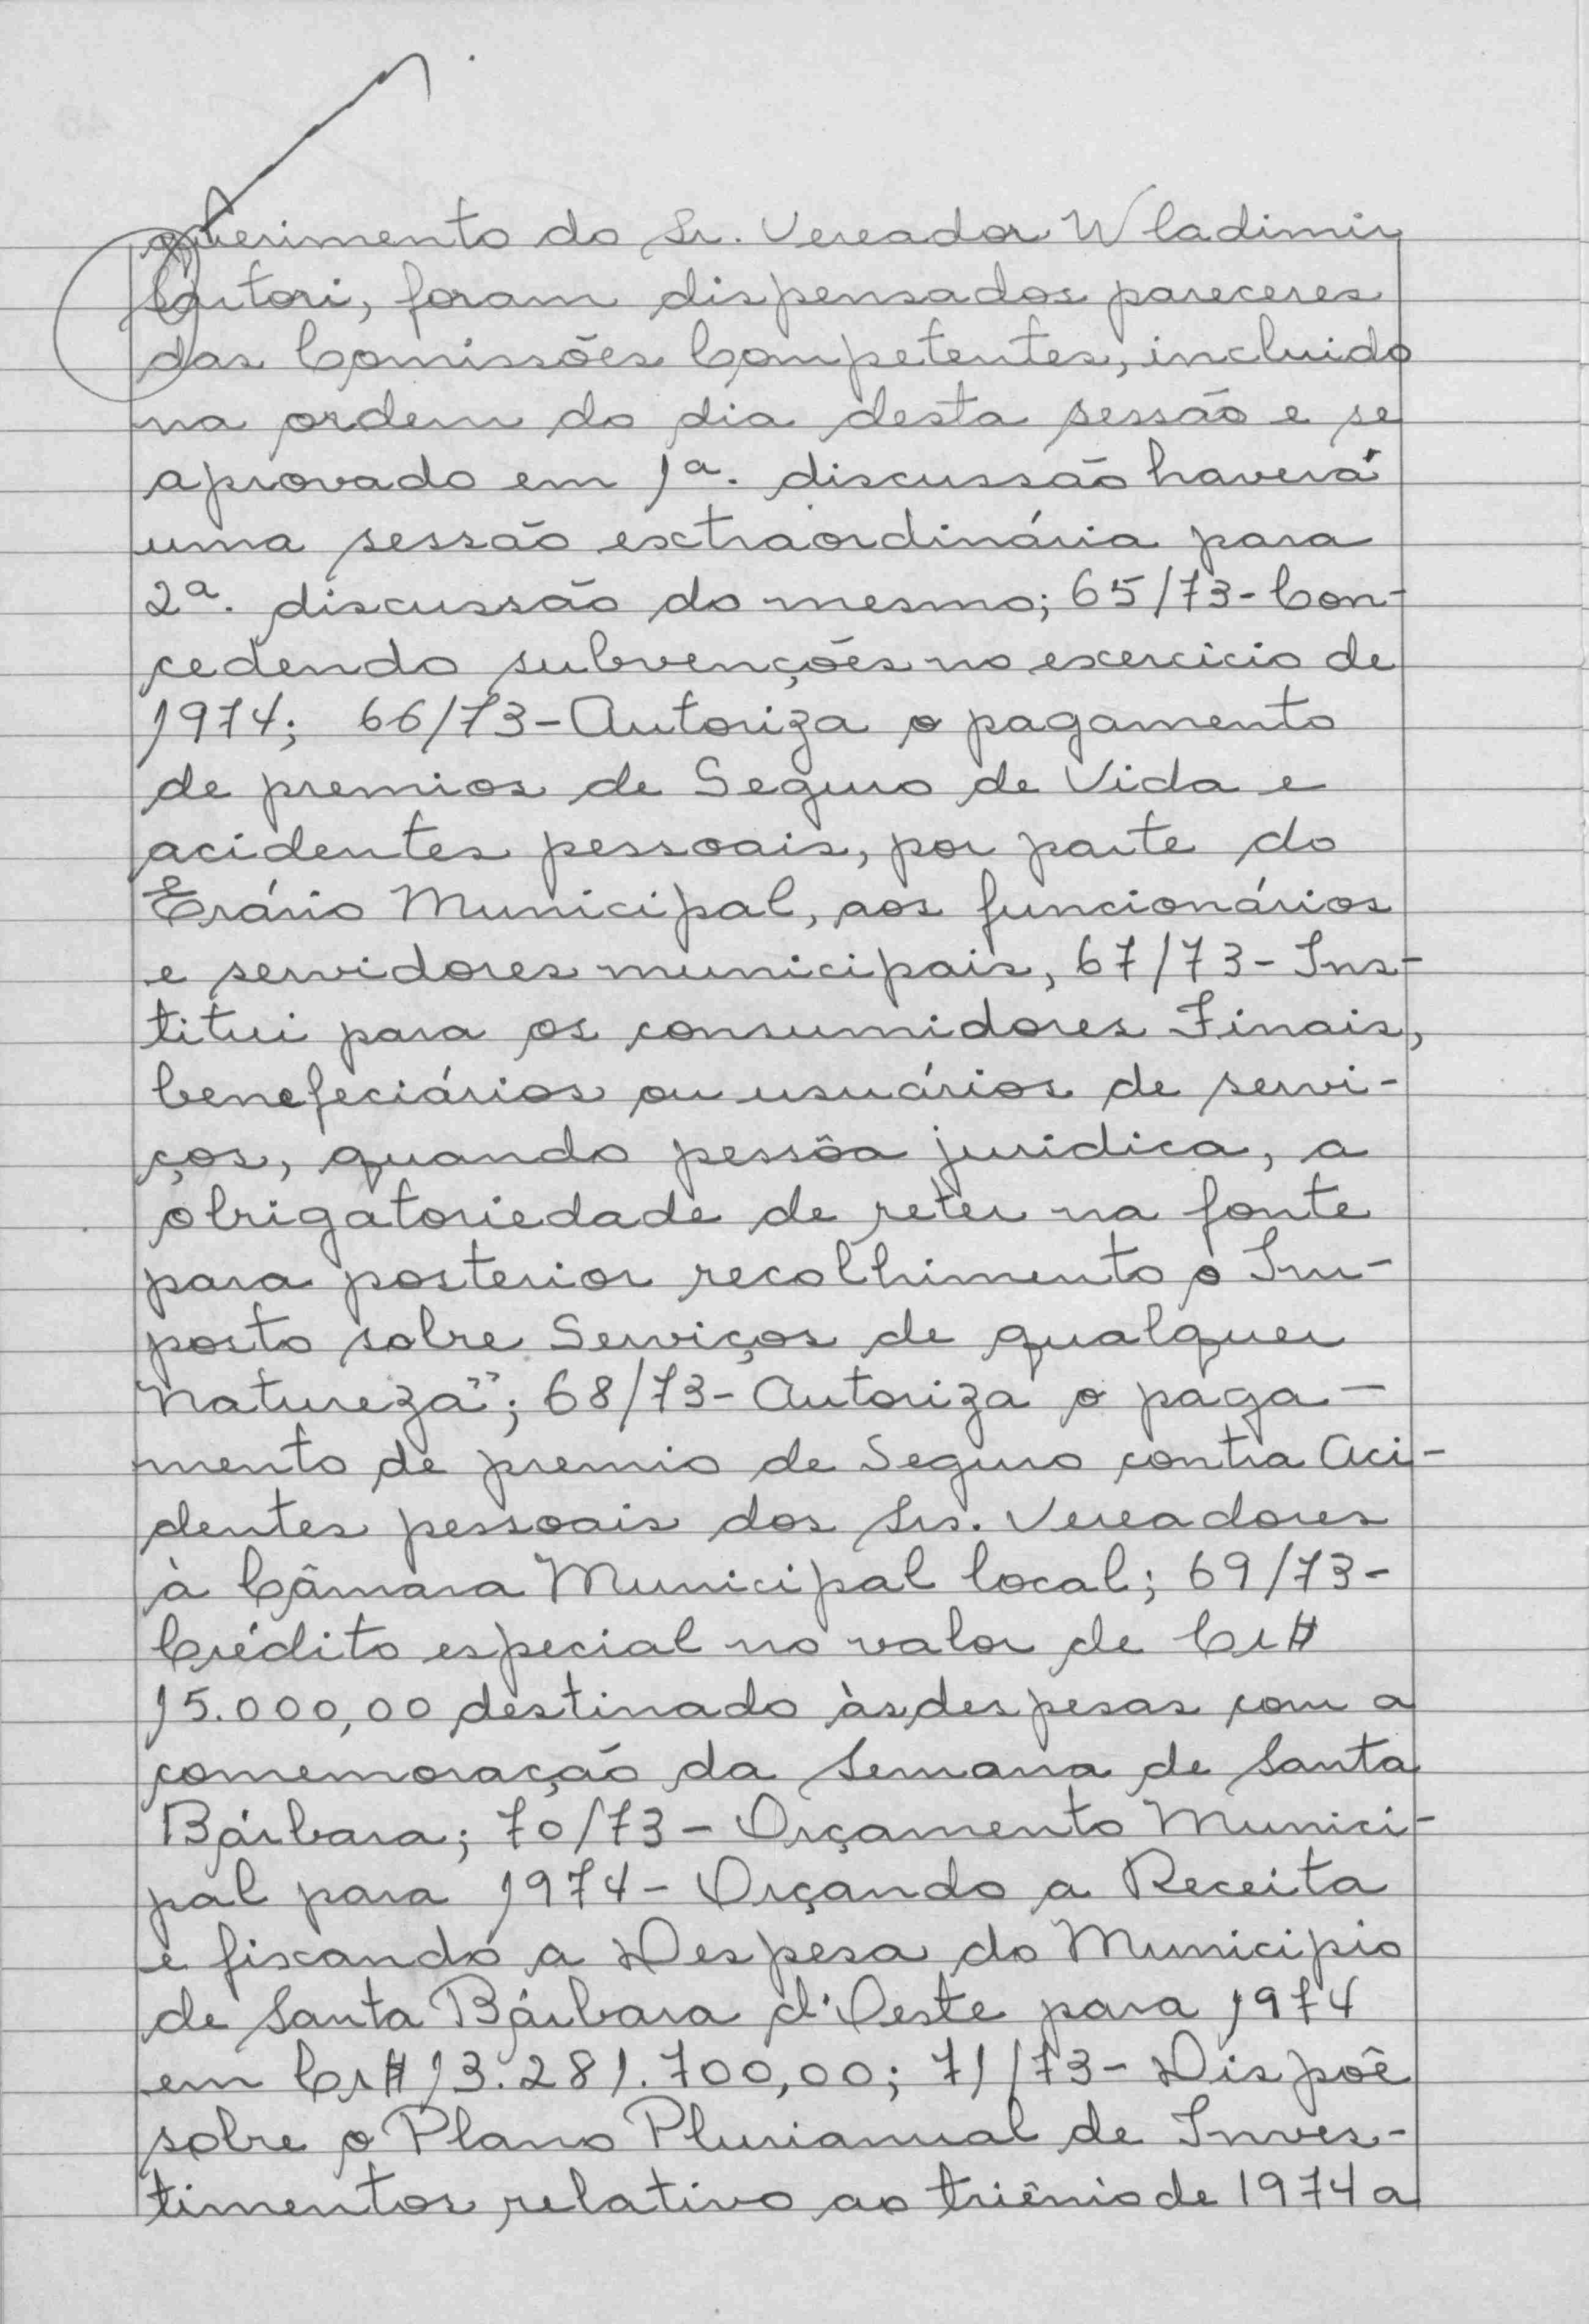 querimento do Sr. Vereador Wladimir
Sartori, foram dispensados pareceres
das Comissões Competentes, incluido
na ordem do dia desta sessão e se
aprovado em 1ª. discussão haverá
uma sessão extraordinária para
2ª. discussão do mesmo; 65/73- Con-
cedendo subvenções no exercicio de
1974; 66/73- Autoriza o pagamento
de premios de Seguro de Vida e
acidentes pessoais, por parte do
Erário Municipal, aos funcionários
e servidores municipais, 67/73- Ins-
titui para os consumidores Finais,
benefeciários ou usuários de servi-
ços, quando pessôa juridica, a
obrigatoriedade de reter na fonte
para posterior recolhimento o Im-
posto sobre Serviços de qualquer
Natureza"; 68/73- Autoriza o paga-
mento de premio de Seguro contra Aci-
dentes pessoais dos Srs. Vereadores
à Câmara Municipal local; 69/73-
Crédito especial no valor de Cr$
15.000,00 destinado às despesas com a
comemoração da Semana de Santa
Bárbara; 70/73- Orçamento Munici-
pal para 1974- Orçando a Receita
e fixando a Despesa do Municipio
de Santa Bárbara d'Oeste para 1974
em Cr$ 13.281.700,00; 71/73- Dispõe
sobre o Plano Plurianual de Inves-
timentos relativo ao triênio de 1974 a